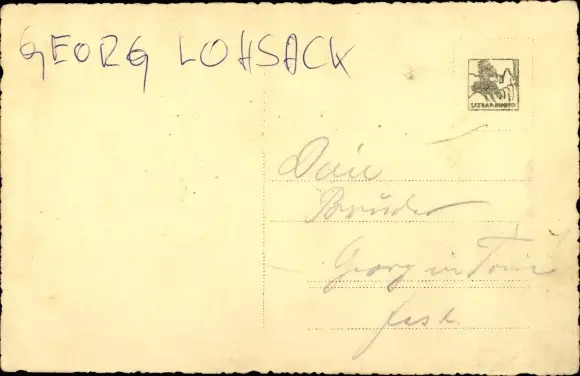 GEORG LOHSACK
SATRAP-PHOTO
Dein
Bruder
Georg in